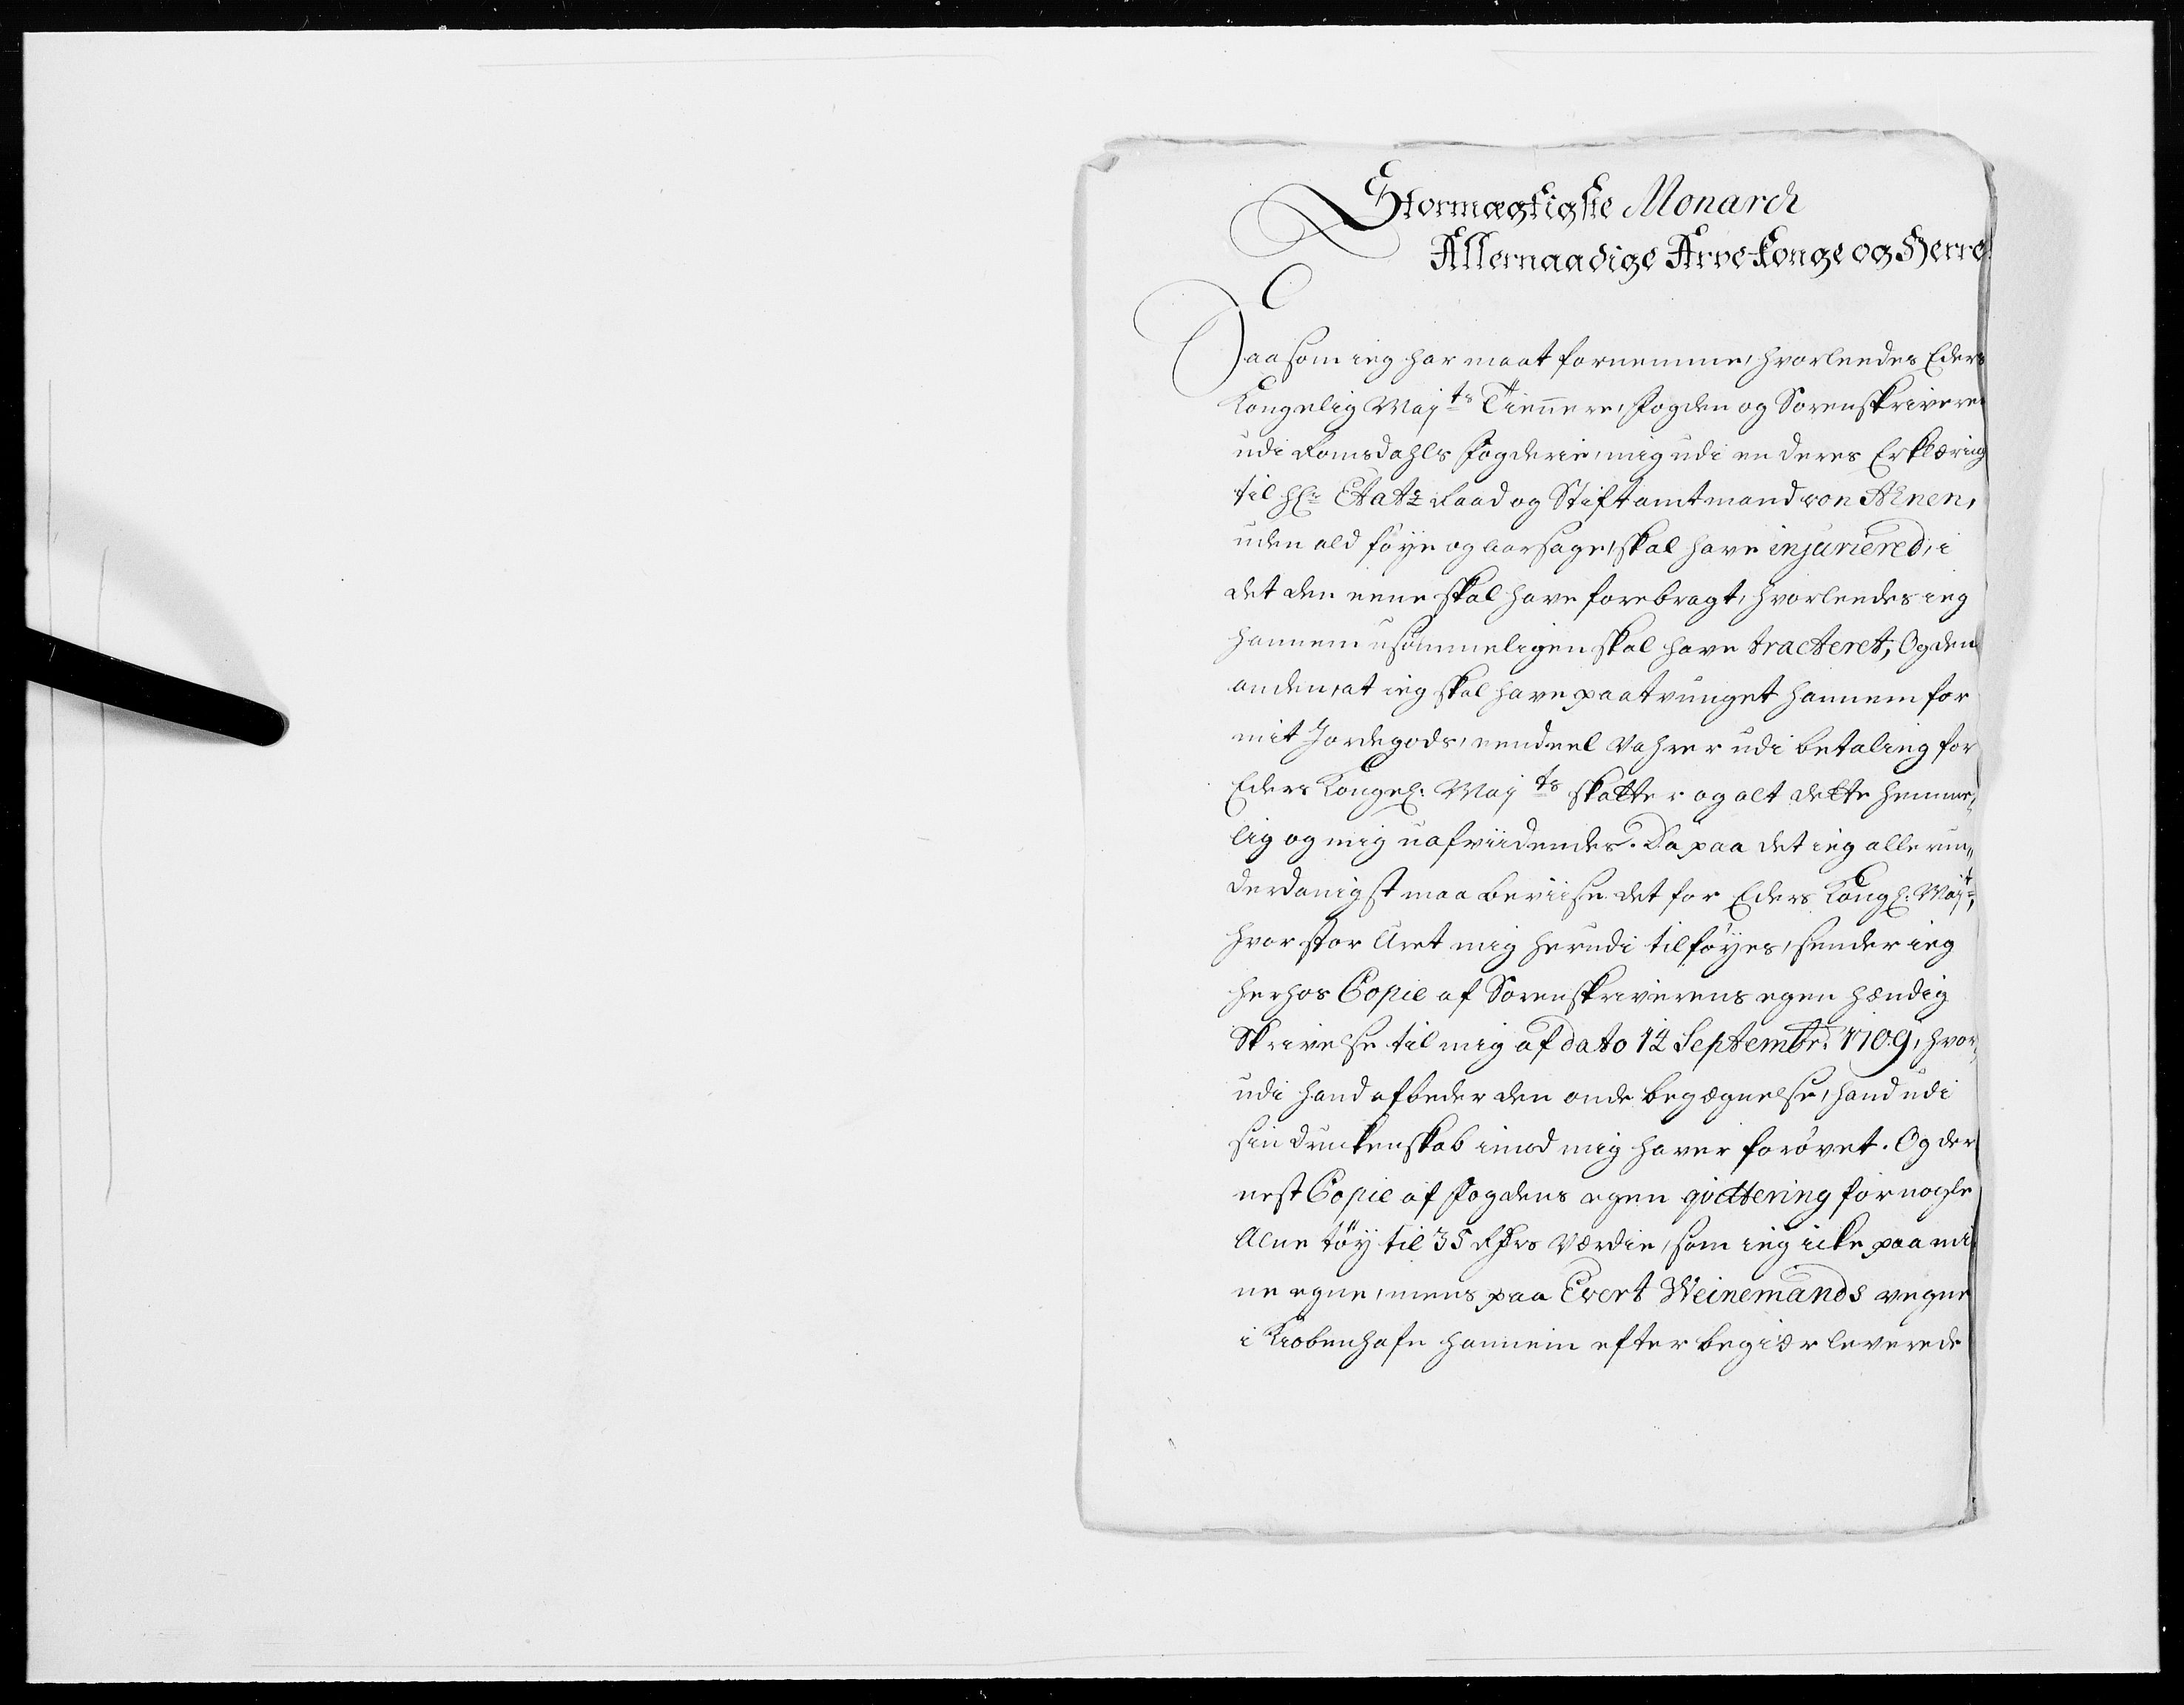 Stormægtigste Monarch
Allernaadige Arve-Konge og Herre
Daa som ieg har maat fornemme, hvorleedes Eders
Kongelig Majts Tiennere, Fogden og Sorenskriveren
udi Romsdahls Fogderie, mig udi en deres Erklæring
til Hr Etatz Raad og Stiftamtmand von Ahnen,
uden ald føye og aarsage, skal have injuriered, i
det den eene skal have forebragt, hvorleedes ieg
hannem usømmeligen skal have tracteret, Og den
anden, at ieg skal have paatvunget hannem for
mit Jordegods, eendeel Vahrer udi betaling for
Eders Kongel: Majts skatter og alt dette hemme,
lig og mig uafviidendes. Da paa det ieg allerun,,
derdanigst maa beviise det for Eders Kongl: Majt,
hvor stor Uret mig herudi tilføyes, sender ieg
herhos Copie af Sorenskriverens egen hændig
Skrivelse til mig af dato 12 Septembr: 1709, hvor,
udi hand afbeder den onde begægnelse, hand udi
sin druckenskab imod mig haver forøvet. Og der
nest Copie af Fogdens egen qvittering for nogle
Alne tøy til 35 Rdrs Værdie, som ieg icke paa mi
ne egne, mens paa Evert Weinemands vegne
i Kiøbenhafn hannem efter begiær leverede